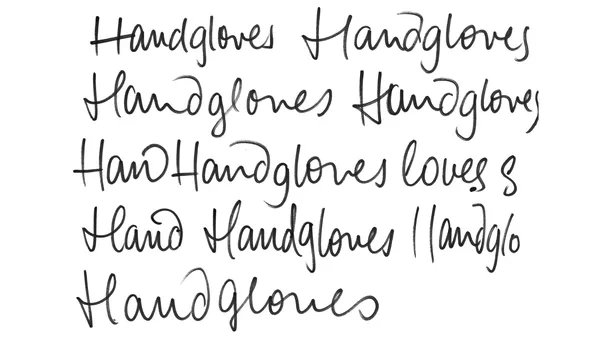 Handgloves Handgloves
Handgloves Handgloves
Han Handgloves loves s
Hand Handgloves Handglo
Handgloves